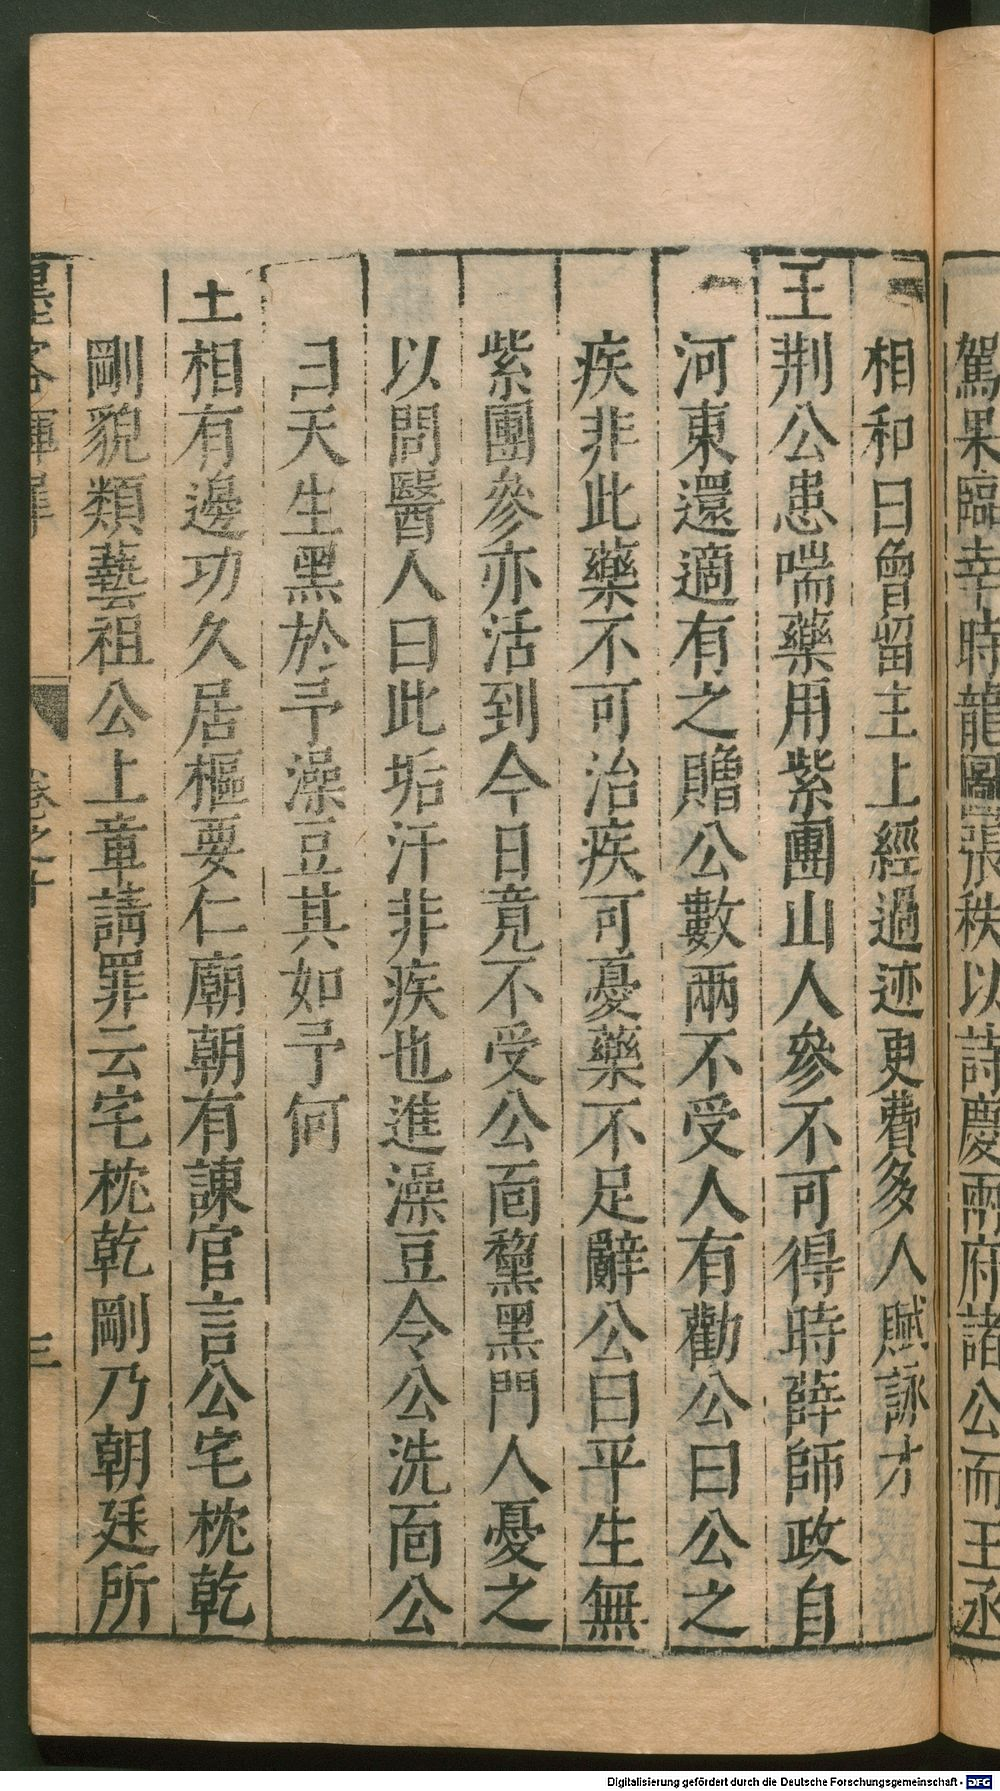 駕果臨幸時龍圖張秩以詩慶兩府諸公而王丞
相和曰曾留主上經過迹更費多人賦詠才
王荆公患喘藥用紫團山人參不可得時薛師政自
河東還適有之贈公數兩不受人有勸公曰公之
疾非此藥不可治疾可憂藥不足辭公曰平生無
紫團參亦活到今日竟不受公面黧黑門人憂之
以問醫人曰此垢汗非疾也進澡豆令公洗面公
曰天生黑於予澡豆其如予何
王相有邊功久居樞要仁廟朝有諫官言公宅枕乾
剛貌類藝祖公上章請罪云宅枕乾剛乃朝廷所
墨客揮犀 卷之十 三
Digitalisierung gefördert durch die Deutsche Forschungsgemeinschaft - DFG